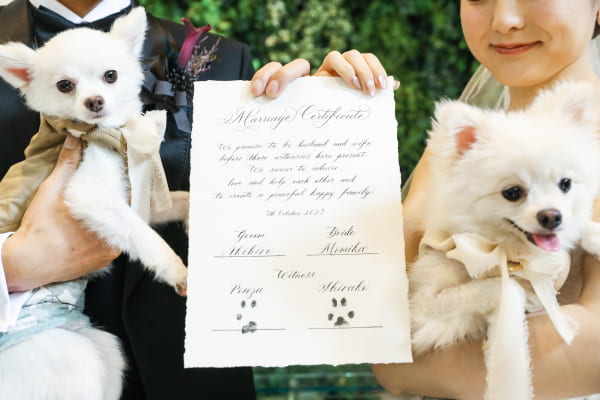 Marriage Certificate
We promise to be husband and wife
before those witnesses here present.
We swear to admire,
love and help each other and
to create a peaceful happy family.
7th October 2023
Groom Bride
Akihiro Momika
Witness
Ponzu Shirako